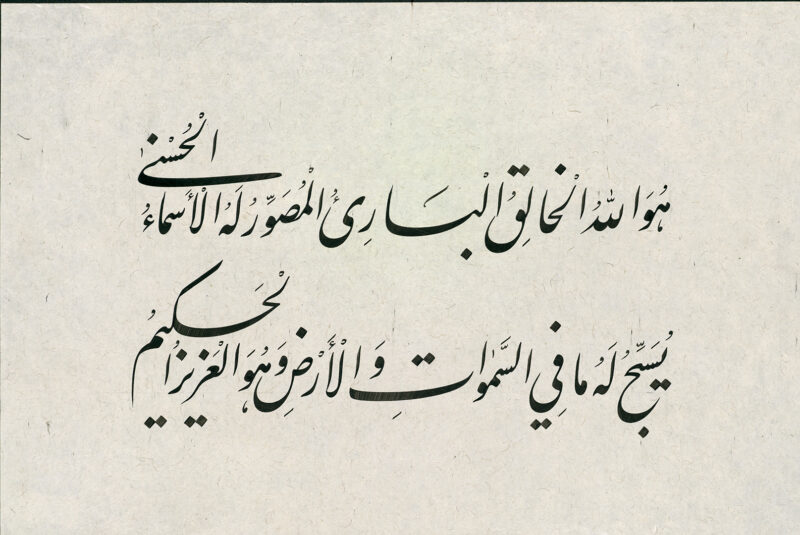 هُوَ اللهُ الْخَالِقُ الْبَارِئُ الْمُصَوِّرُ لَهُ الْأَسْمَاءُ الْحُسْنىٰ
يُسَبِّحُ لَهُ مَا فِي السَّمٰوَاتِ وَالْأَرْضِ وَهُوَ الْعَزِيزُ الْحَكِيمُ